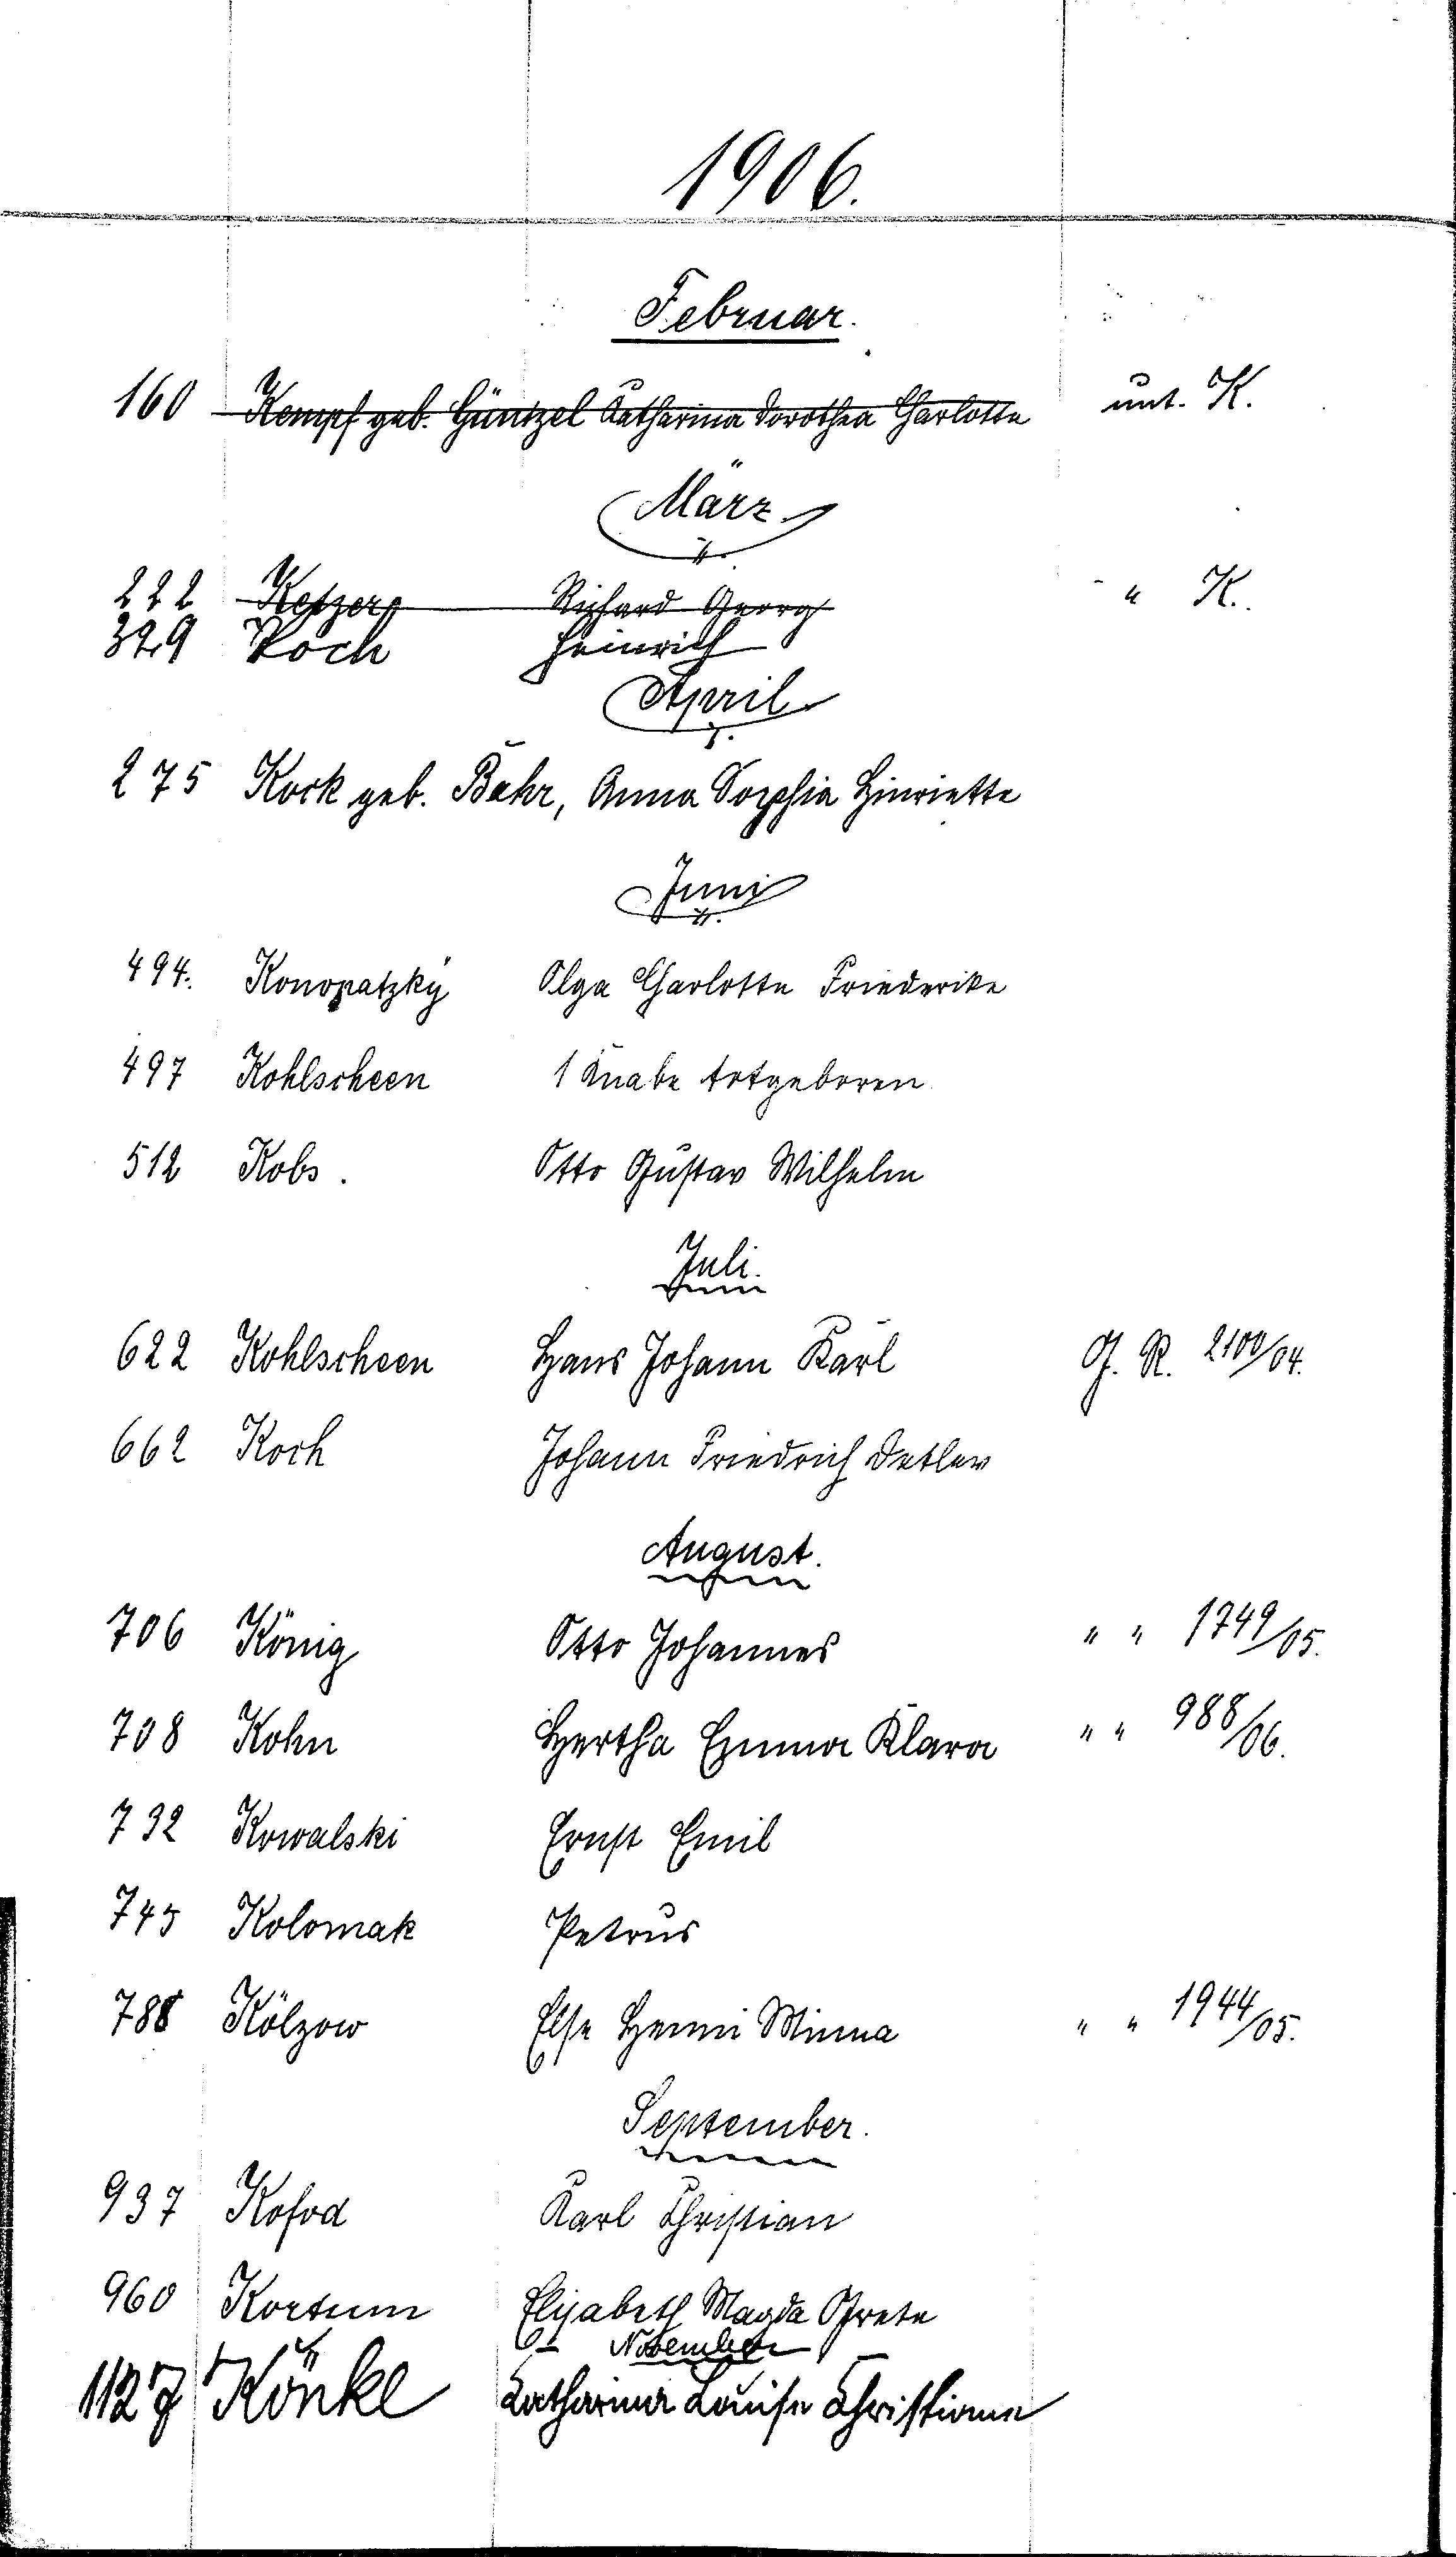 1906.
Februar.
160 Kempf geb. Güntzel Katharina Dorothea Charlotte unt. K.
März
222 Richard Georg " K.
329 Koch Heinrich
April
275 Kock geb. Bahr, Anna Sophia Hinriette
Juni
494. Konopatzky Olga Charlotte Friederike
497 Kohlscheen 1 Knabe totgeboren
512 Kobs. Otto Gustav Wilhelm
Juli.
622 Kohlscheen Hans Johann Karl G. R. 2100/04.
662 Koch Johann Friedrich Detlev
August.
706 König Otto Johannes " " 1749/05.
708 Kohn Hertha Emma Klara " " 988/06.
732 Kowalski Ernst Emil
745 Kolomak Petrus
788 Kölzow Else Henni Minna " " 1944/05.
September.
937 Kofod Karl Christian
960 Kortum Elisabeth Magda Grete
November
1127 Könke Catharina Louise Christiane